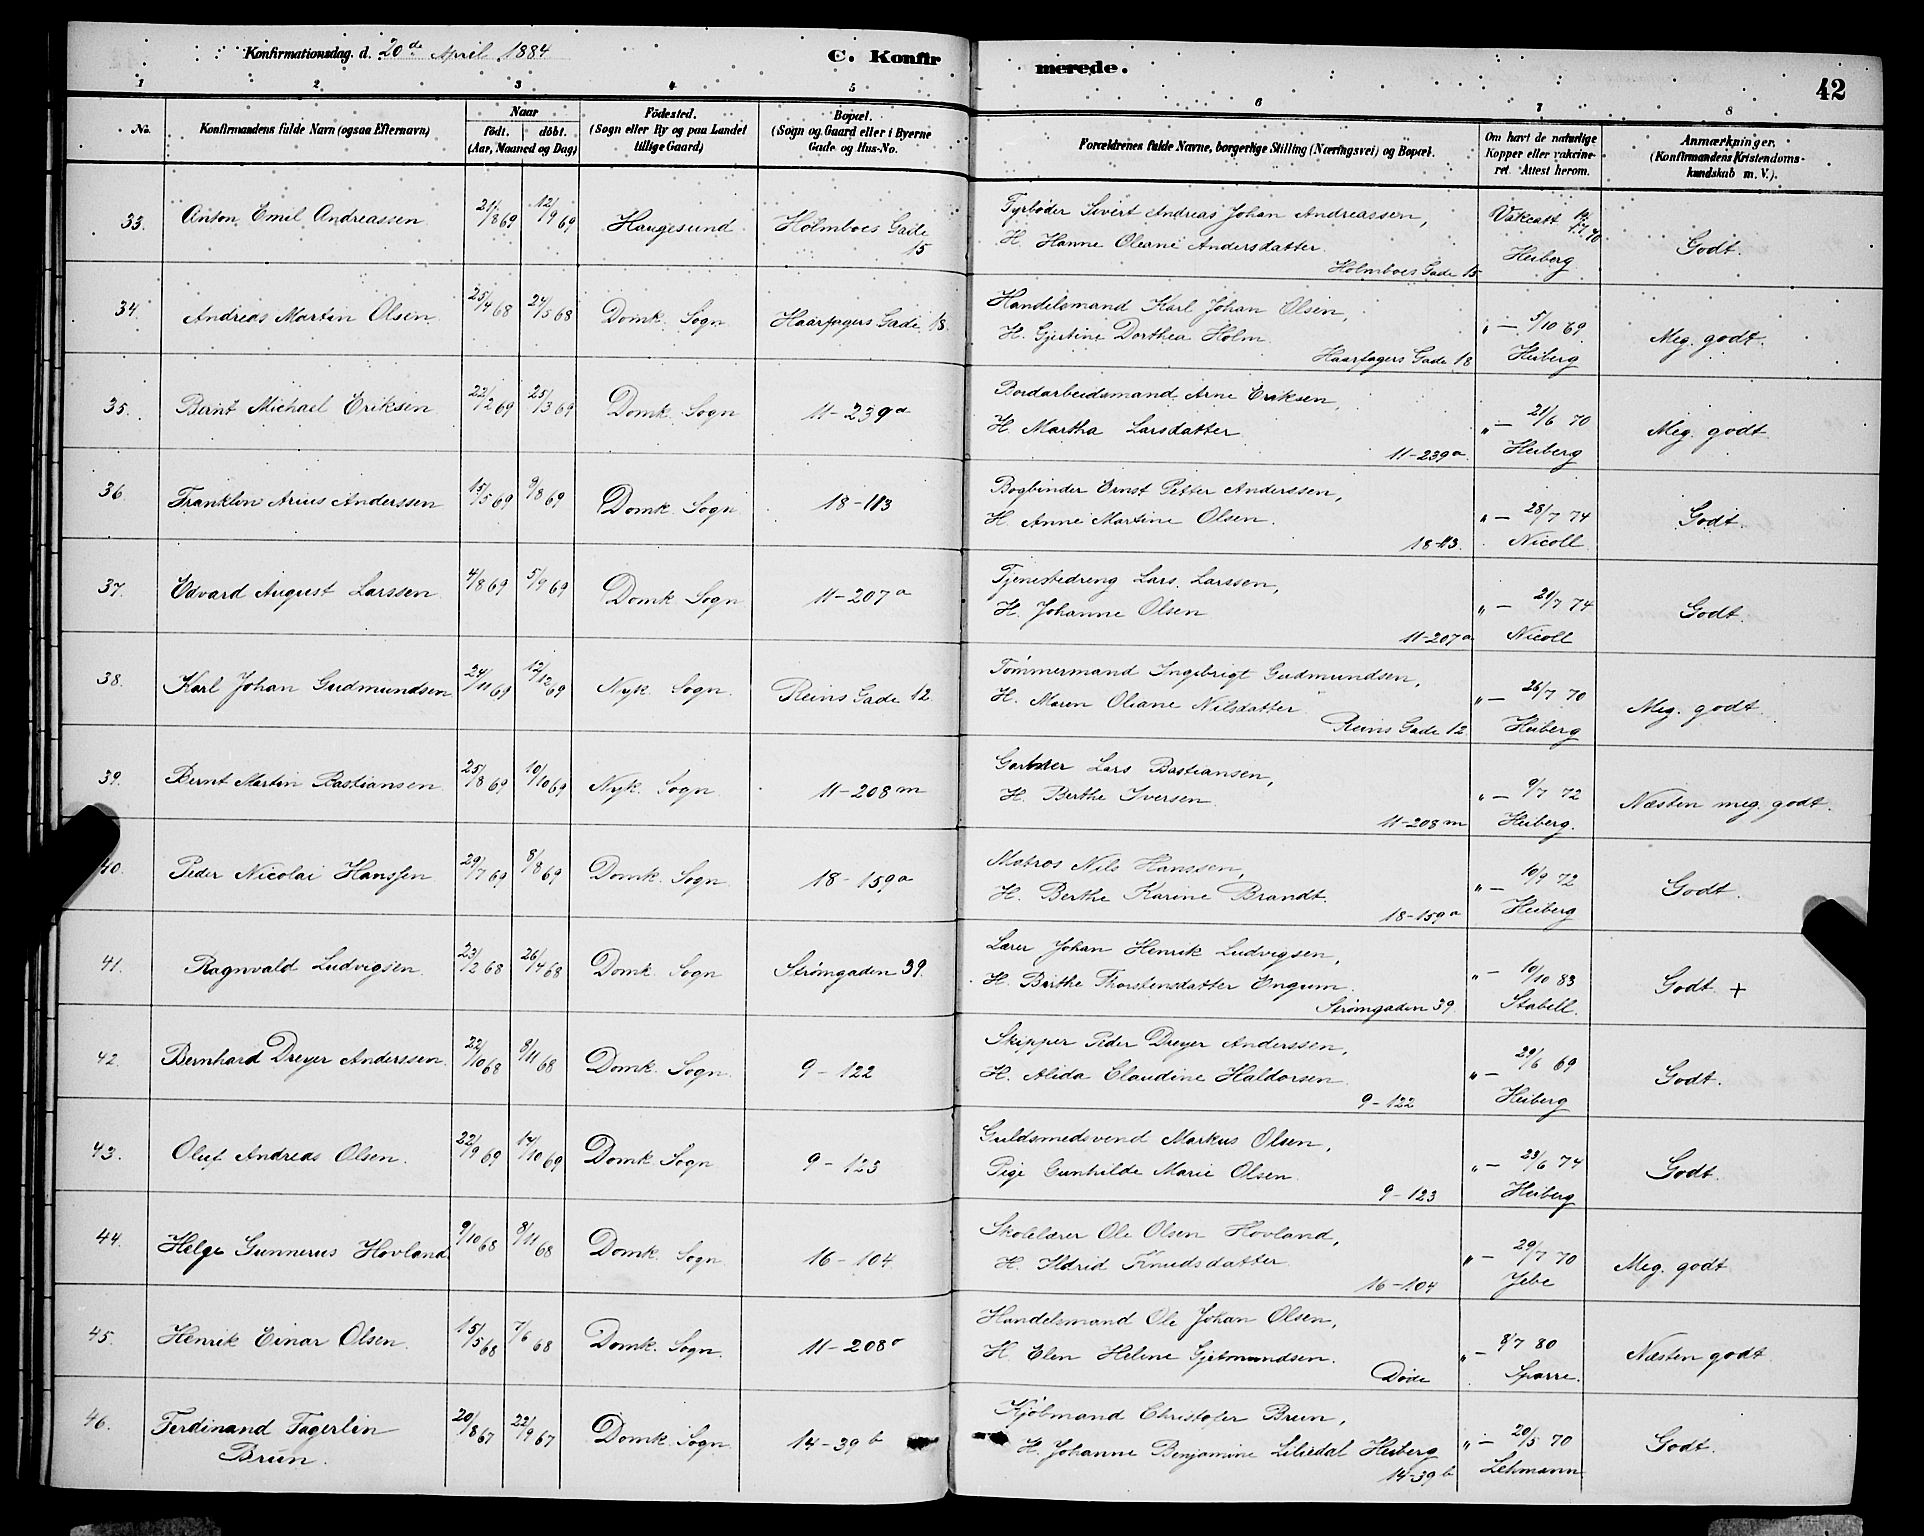 Konfirmationsdag. d. 20de April 1884
C. Konfir
merede.
42
1 2 3 4 5 6 7 8
No.
Konfirmandens fulde Navn (ogsaa Efternavn)
Naar
födt. döbt.
(Aar, Maaned og Dag)
Födested.
(Sogn eller By og paa Landet
tillige Gaard)
Bopæl.
(Sogn og Gaard eller i Byerne
Gade og Hus-No.
Forældrenes fulde Navne, borgerlige Stilling (Næringsvei) og Bopæl.
Om havt de naturlige
Kopper eller vakcine-
ret. Attest herom.
Anmærkninger.
(Konfirmandens Kristendoms-
kundskab m. V.).
33. Anton Emil Andreassen 21/8 69 12/9 69 Haugesund Holmboes Gade 15
Fyrbøder Sivert Andreas Johan Andreassen,
H. Hanne Oleane Andersdatter.
Holmboes Gade 15
Vakcatt 14/7 70
Heiberg
Godt.
34. Andreas Martin Olsen 25/4 68 24/5 68 Domk. Sogn Haarfagers Gade 18.
Handelsmand Karl Johan Olsen,
H. Gjertine Dorthea Holm.
Haarfagers Gade 18
" — 5/10 69
Heiberg
Meg. godt.
35. Bernt Michael Eriksen 22/2 69 25/3 69 Domk. Sogn 11-239a
Bordarbeidsmand Arne Eriksen,
H. Martha Larsdatter
11-239a.
" — 21/6 70
Heiberg
Meg. godt
36. Franklin Arius Anderssen 15/5 69 9/8 69 Domk. Sogn 18-113
Bogbinder Ernst Petter Anderssen,
H. Anne Martine Olsen.
18-113.
" — 28/7 74
Nicoll
Godt.
37. Edvard August Larssen 4/8 69 5/9 69 Domk. Sogn 11-207a
Tjenestedreng Lars Larssen,
H. Johanne Olsen
11-207a
" — 20/7 74
Nicoll
Godt.
38. Karl Johan Gudmundsen 24/11 69 12/12 69 Nyk. Sogn. Reins Gade 12.
Tømmermand Ingebrigt Gudmundsen,
H. Maren Oliane Nilsdatter
Reins Gade 12
" — 26/7 70
Heiberg
Meg. godt
39. Bernt Martin Bastiansen 25/8 69 10/10 69 Nyk. Sogn 11-208m
Gartner Lars Bastiansen,
H. Berthe Iversen.
11-208m
" — 9/7 72
Heiberg.
Næsten meg. godt.
40. Peder Nicolai Hanssen 29/7 69 8/8 69 Domk. Sogn 18-159a
Matros Nils Hanssen,
H. Berthe Karine Brandt.
18-159a
" — 10/9 72
Heiberg
Godt.
41. Ragnvald Ludvigsen 23/2 68 26/4 68 Domk. Sogn Strømgaden 39.
Lærer Johan Henrik Ludvigsen,
H. Birthe Thorstensdatter Engum.
Strømgaden 39.
" — 10/10 83
Stabell.
Godt. +
42. Bernhard Dreyer Anderssen. 22/10 68 8/11 68 Domk. Sogn 9-122
Skipper Peder Dreyer Anderssen,
H. Alida Claudine Haldorsen
9-122
" — 29/6 69
Heiberg
Godt.
43. Oluf Andreas Olsen. 22/9 69 17/10 69 Domk. Sogn 9-123
Guldsmedsvend Markus Olsen,
Pige Gunhilde Marie Olsen
9-123
" — 23/6 74
Heiberg
Godt.
44. Helge Gunnerus Hovland 9/10 68 8/11 68 Domk. Sogn. 16-104
Skolelærer Ole Olsen Hovland,
H. Ildrid Knudsdatter
16-104
" — 29/7 70
Jebe
Meg. godt
45. Henrik Einar Olsen. 15/5 68 7/6 68 Domk. Sogn. 11-208o
Handelsmand Ole Johan Olsen,
H. Elen Helene Gjetmundsen.
Døde
" — 8/7 80
Sparre.
Næsten godt
46. Ferdinand Fagerlin
Brun. 20/8 67 22/9 67 Domk. Sogn. 14-39b
Kjøbmand Christofer Brun,
H. Johanne Benjamine Liliedal Heiberg
14-39b
" — 20/5 70
Lehmann
Godt.